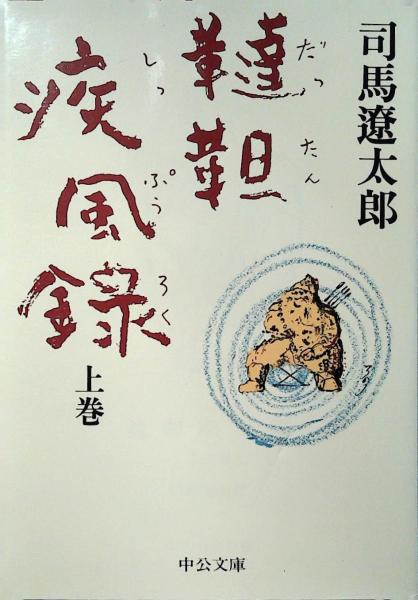 司馬遼太郎
韃靼
だったん
疾風録
しっぷうろく
上巻
中公文庫